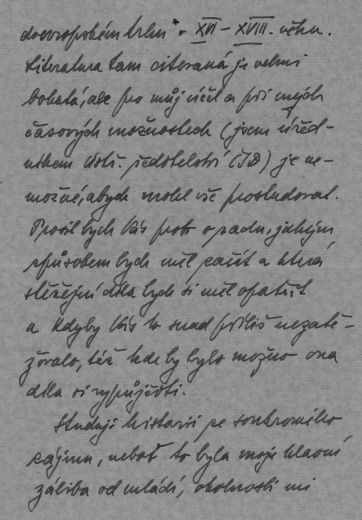 doevropském trhu * v XVI – XVIII. věku.
Literatura tam citovaná je velmi
bohatá, ale pro můj účel a při mých
časových možnostech (jsem úřed-
níkem ústř. ředitelství) je ne-
možné, abych mohl vše prostudovat.
Prosil bych Vás proto o radu, jakým
způsobem bych měl začít a která
stěžejní díla bych si měl opatřit
a kdyby Vás to snad příliš nezatě-
žovalo, též kde by bylo možno ona
díla si vypůjčiti.
Studuji historii ze soukromého
zájmu, neboť to byla moje hlavní
záliba od mládí, okolnosti mi